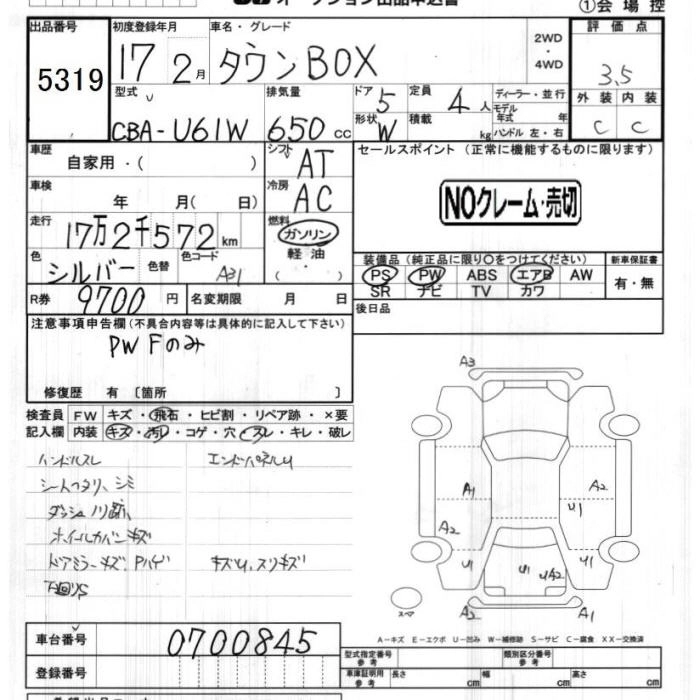 オークション出品申込書
①会場控
出品番号
5319
初度登録年月
17 2月
車名・グレード
タウンBOX
2WD
・
4WD
評価点
3.5
外装 内装
C C
型式
CBA-U61W
排気量
650 cc
ドア
5
形状
W
定員
4人
積載
kg
ディーラー・並行
モデル年式 年
ハンドル 左・右
車歴
自家用・( )
シフト
AT
セールスポイント (正常に機能するものに限ります)
NOクレーム・売切
車検
年 月( 日)
冷房
AC
走行
17万2千572km
燃料
ガソリン
軽油
・
( )
色
シルバー
色替
色コード
A31
装備品 (純正品に限り○をつけてください)
新車保証書
PS PW ABS エアB AW
有・無
SR ナビ TV カワ
R券
9700円
名変期限 月 日
後日品
注意事項申告欄(不具合内容等は具体的に記入して下さい)
PW Fのみ
修復歴 有〔箇所 〕
検査員記入欄
FW キズ・飛石・ヒビ割・リペア跡・×要
内装 キズ・汚レ・コゲ・穴・スレ・キレ・破レ
ハンドルスレ エンドパネルU
シートヘタリ、シミ
ダッシュノリ跡、
ホイールカバーキズ
ドアミラーキズ、Pハゲ キズU、スリキズ
下回りS
A3
A1 A2
U1
A2
U1 U1 UA2 U1
スペア
A2 A1
A-キズ E-エクボ U-凹み W-補修跡 S-サビ C-腐食 XX-交換済
車台番号
0700845
登録番号
型式指定番号
参考
類別区分番号
参考
車庫証明用
参考
長さ cm 幅 cm 高さ cm